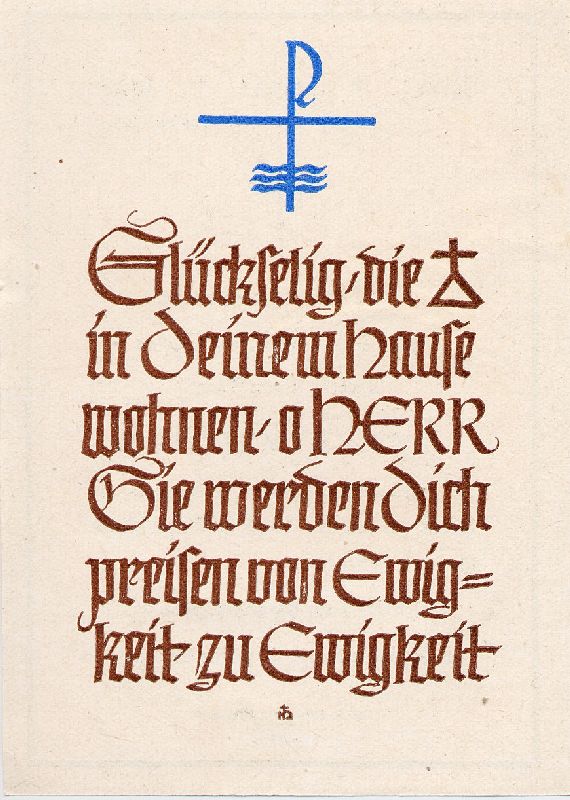 Glückselig, die
in deinem hause
wohnen, o hERR
Sie werden dich
preisen von Ewig=
keit zu Ewigkeit